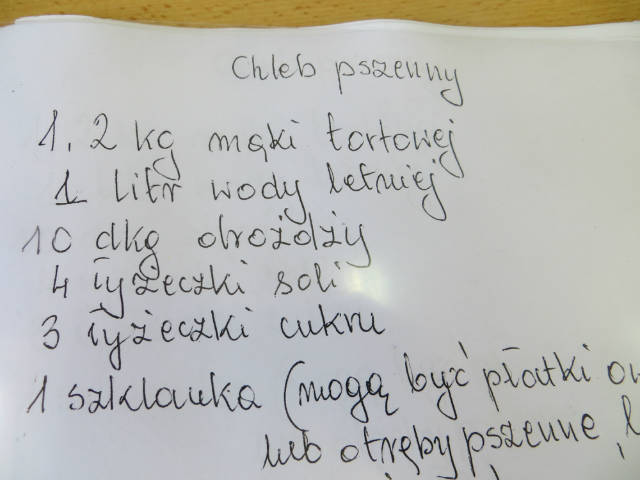 Chleb pszenny
1,2 kg mąki tortowej
1 litr wody letniej
10 dkg drożdży
4 łyżeczki soli
3 łyżeczki cukru
1 szklanka (mogą być płatki
lub otręby pszenne,